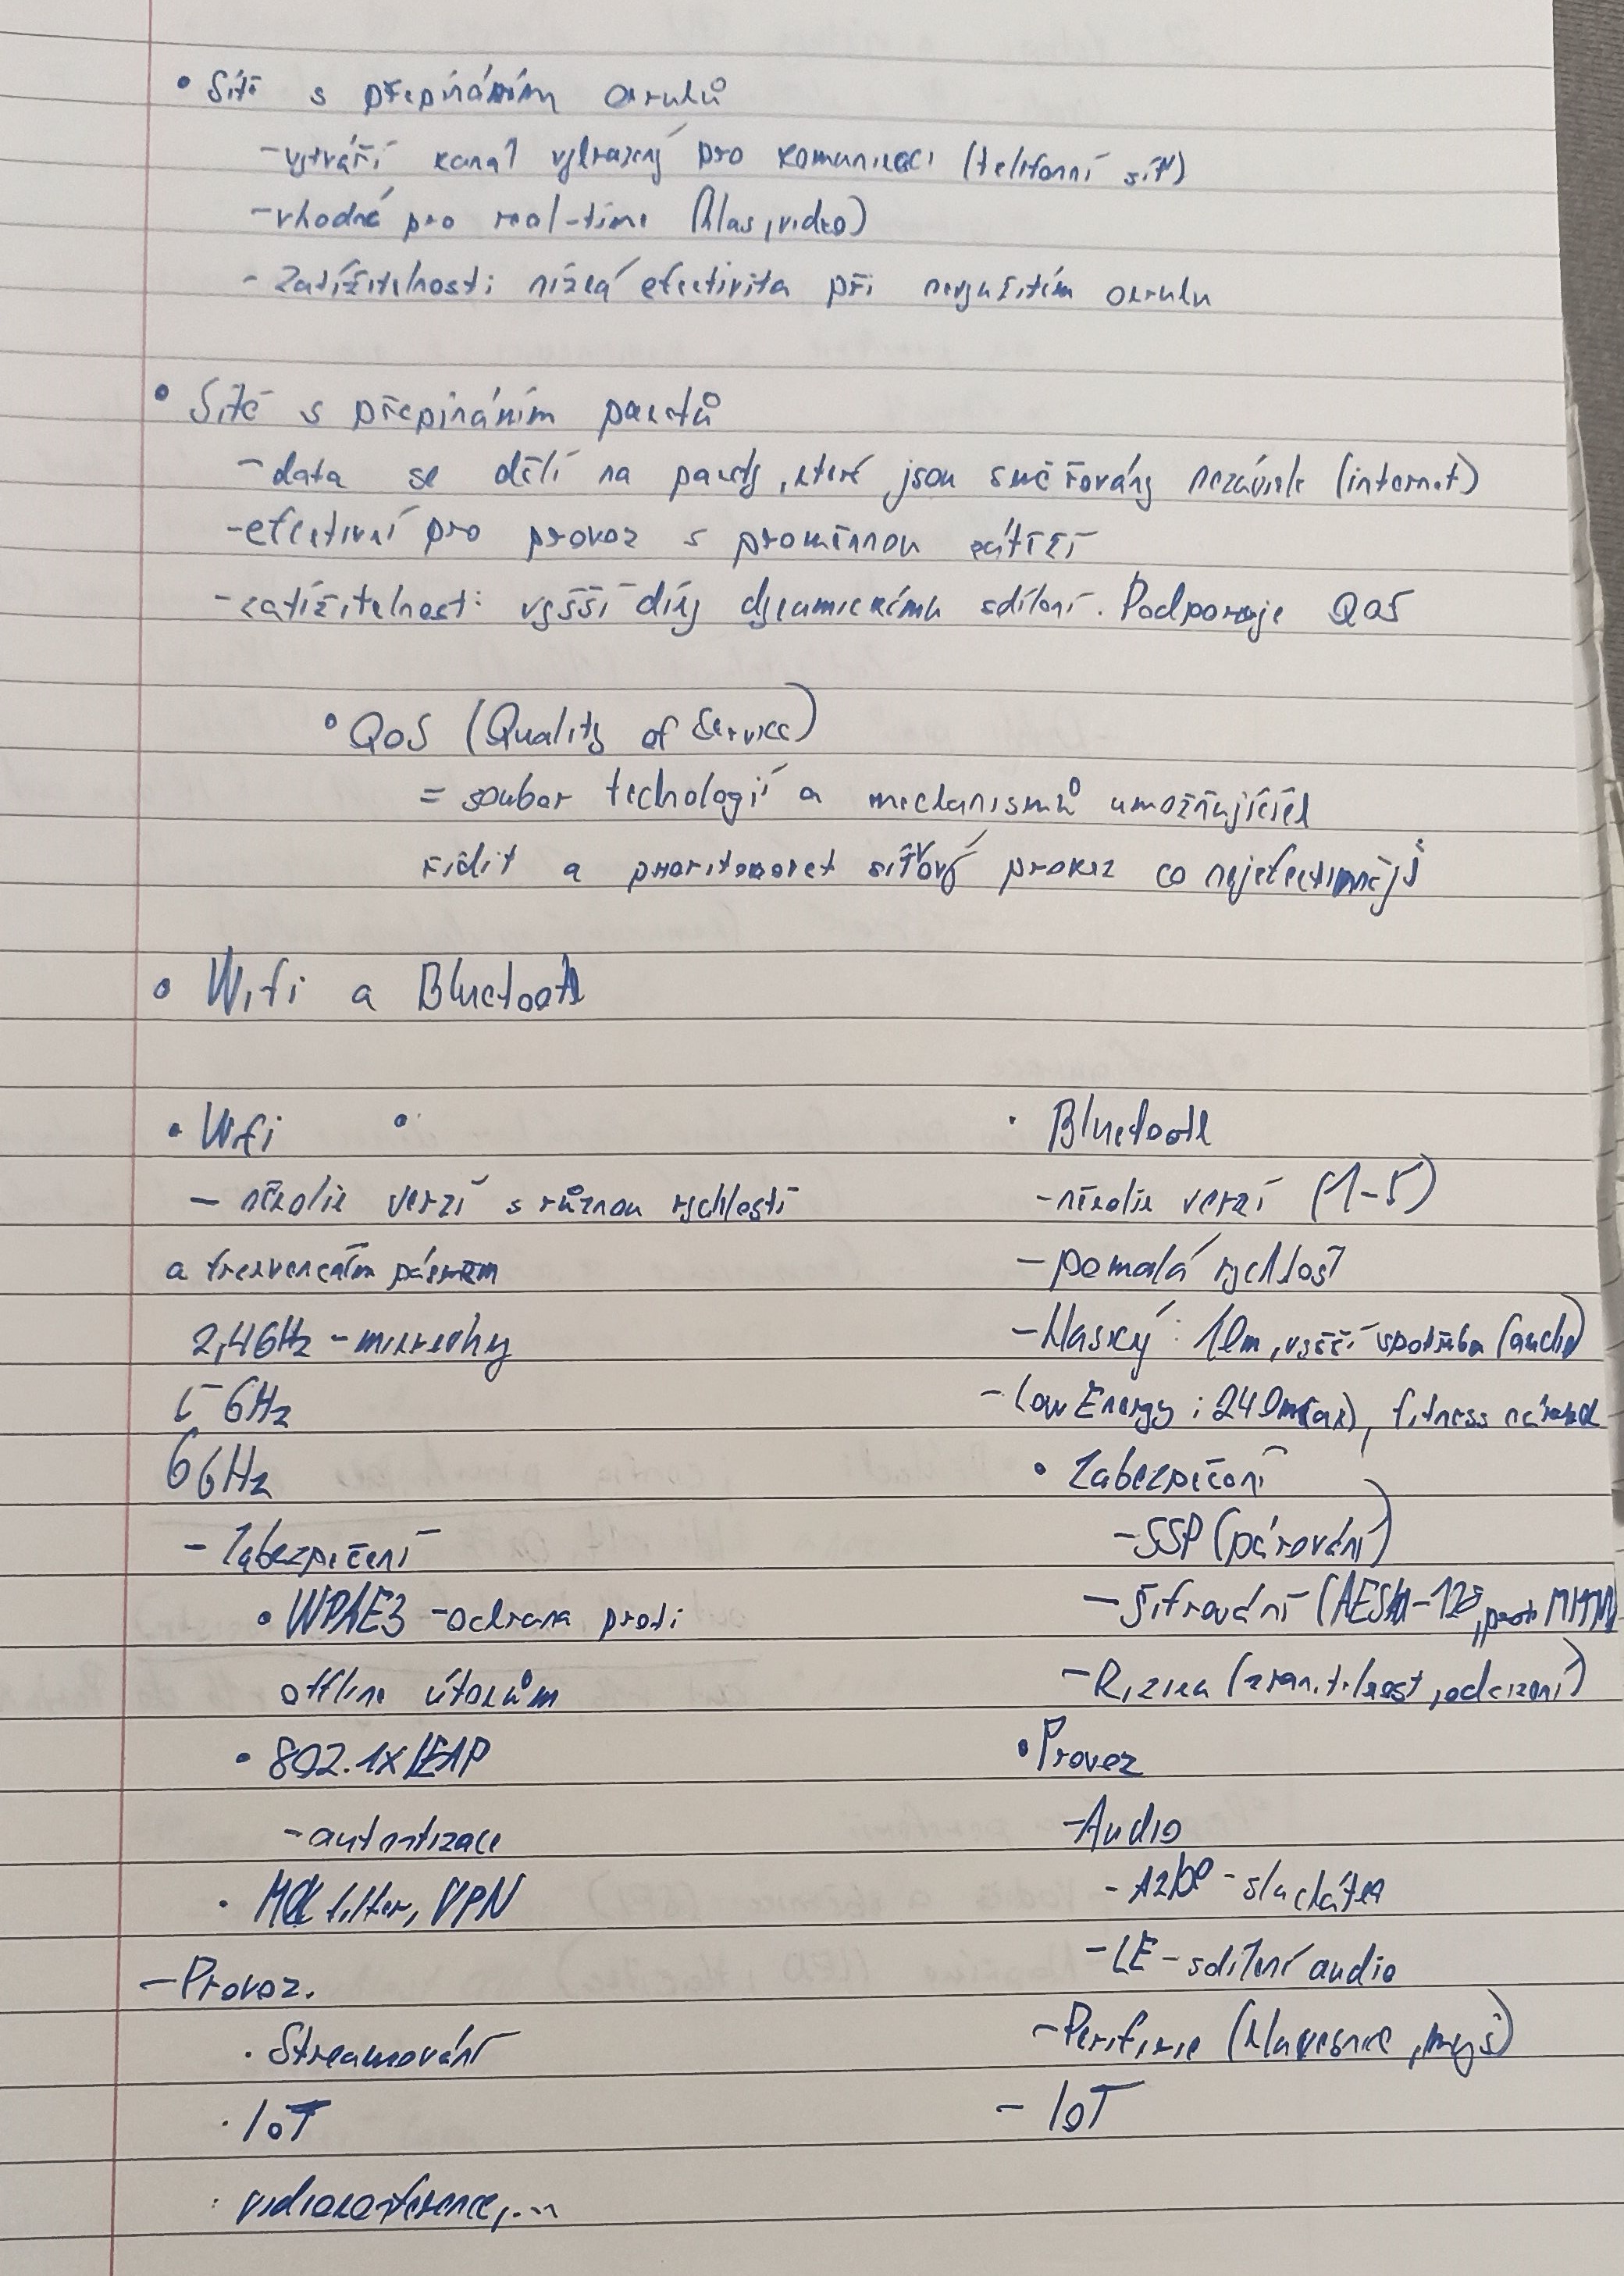 • Sítě s přepínáním okruhů
- vytváří kanál vyhrazený pro komunikaci (telefonní síť)
- vhodné pro real-time (hlas, video)
- Zatížitelnost: nízká efektivita při nevyužitém okruhu
• Sítě s přepínáním paketů
- data se dělí na pakety, které jsou směřovány nezávisle (internet)
- efektivní pro provoz s proměnnou zátěží
- zatížitelnost: vyšší díky dynamickému sdílení. Podporuje QoS
• QoS (Quality of Service)
= soubor techologií a mechanismů umožňujících
řídit a prioritovat síťový provoz co nejefektivněji
• Wifi a Bluetooth
• Wifi
— několik verzí s různou rychlostí
a frekvenčním pásmem
2,4GHz - mikrovlny
5 GHz
6GHz
- Zabezpečení
• WPAE3 - ochrana proti
offline útokům
• 802.1x/EAP
- autentizace
• MAC filter, VPN
— Provoz.
• Streamování
• IoT
• videokonference,...
• Bluetooth
- několik verzí (1-5)
- pomalá rychlost
- klasický: 10m, vyšší spotřeba (audio)
- Low Energy: 240m(ax), fitness náramek
• Zabezpečení
- SSP (párování)
- Šifrování (AES-128, proti MITM)
- Rizika (zranitelnost, odcizení)
• Provoz
- Audio
- A2DP - sluchátka
- LE - sdílení audio
- Periferie (klávesnice, myš)
- IoT